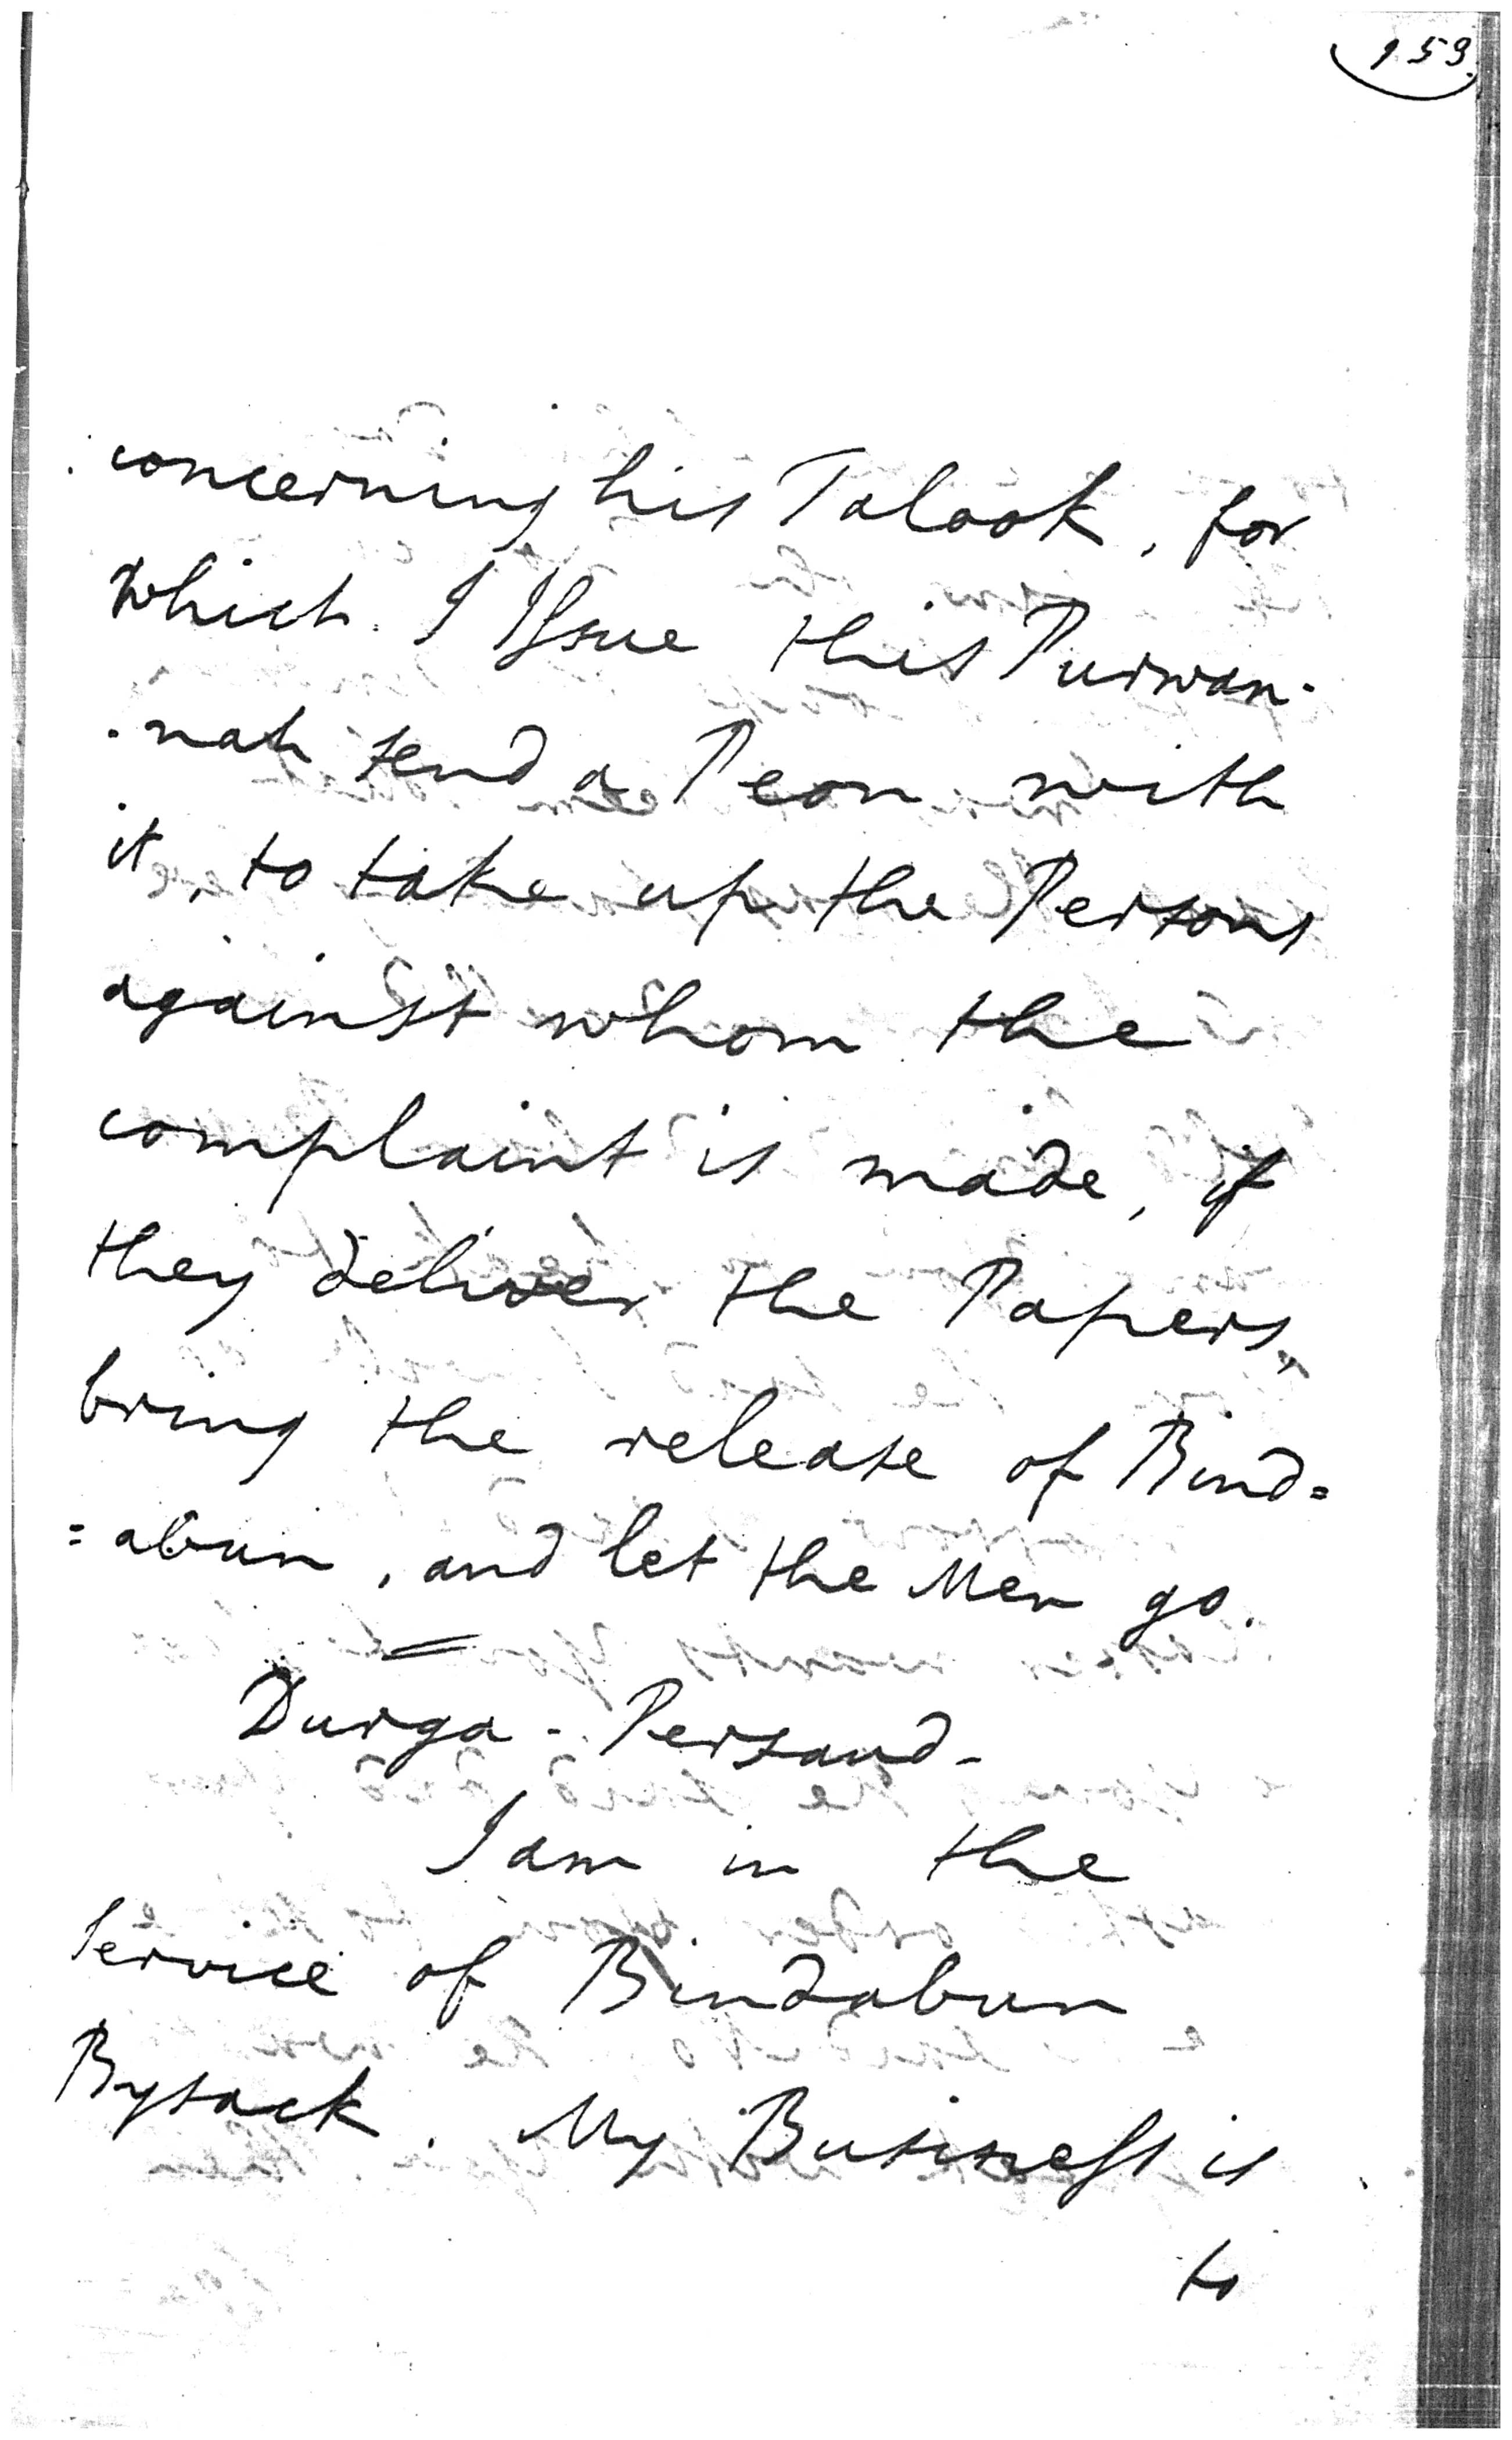 159.
concerning his Talook, for
which I Issue this Purwan-
-nah send a Peon with
it, to take up the Persons
against whom the
complaint is made, if
they deliver the Papers,
bring the release of Bind=
=abun, and let the Men go.
Durga - Persaud -
I am in the
Service of Bindabun
Bysack. My Business is
to